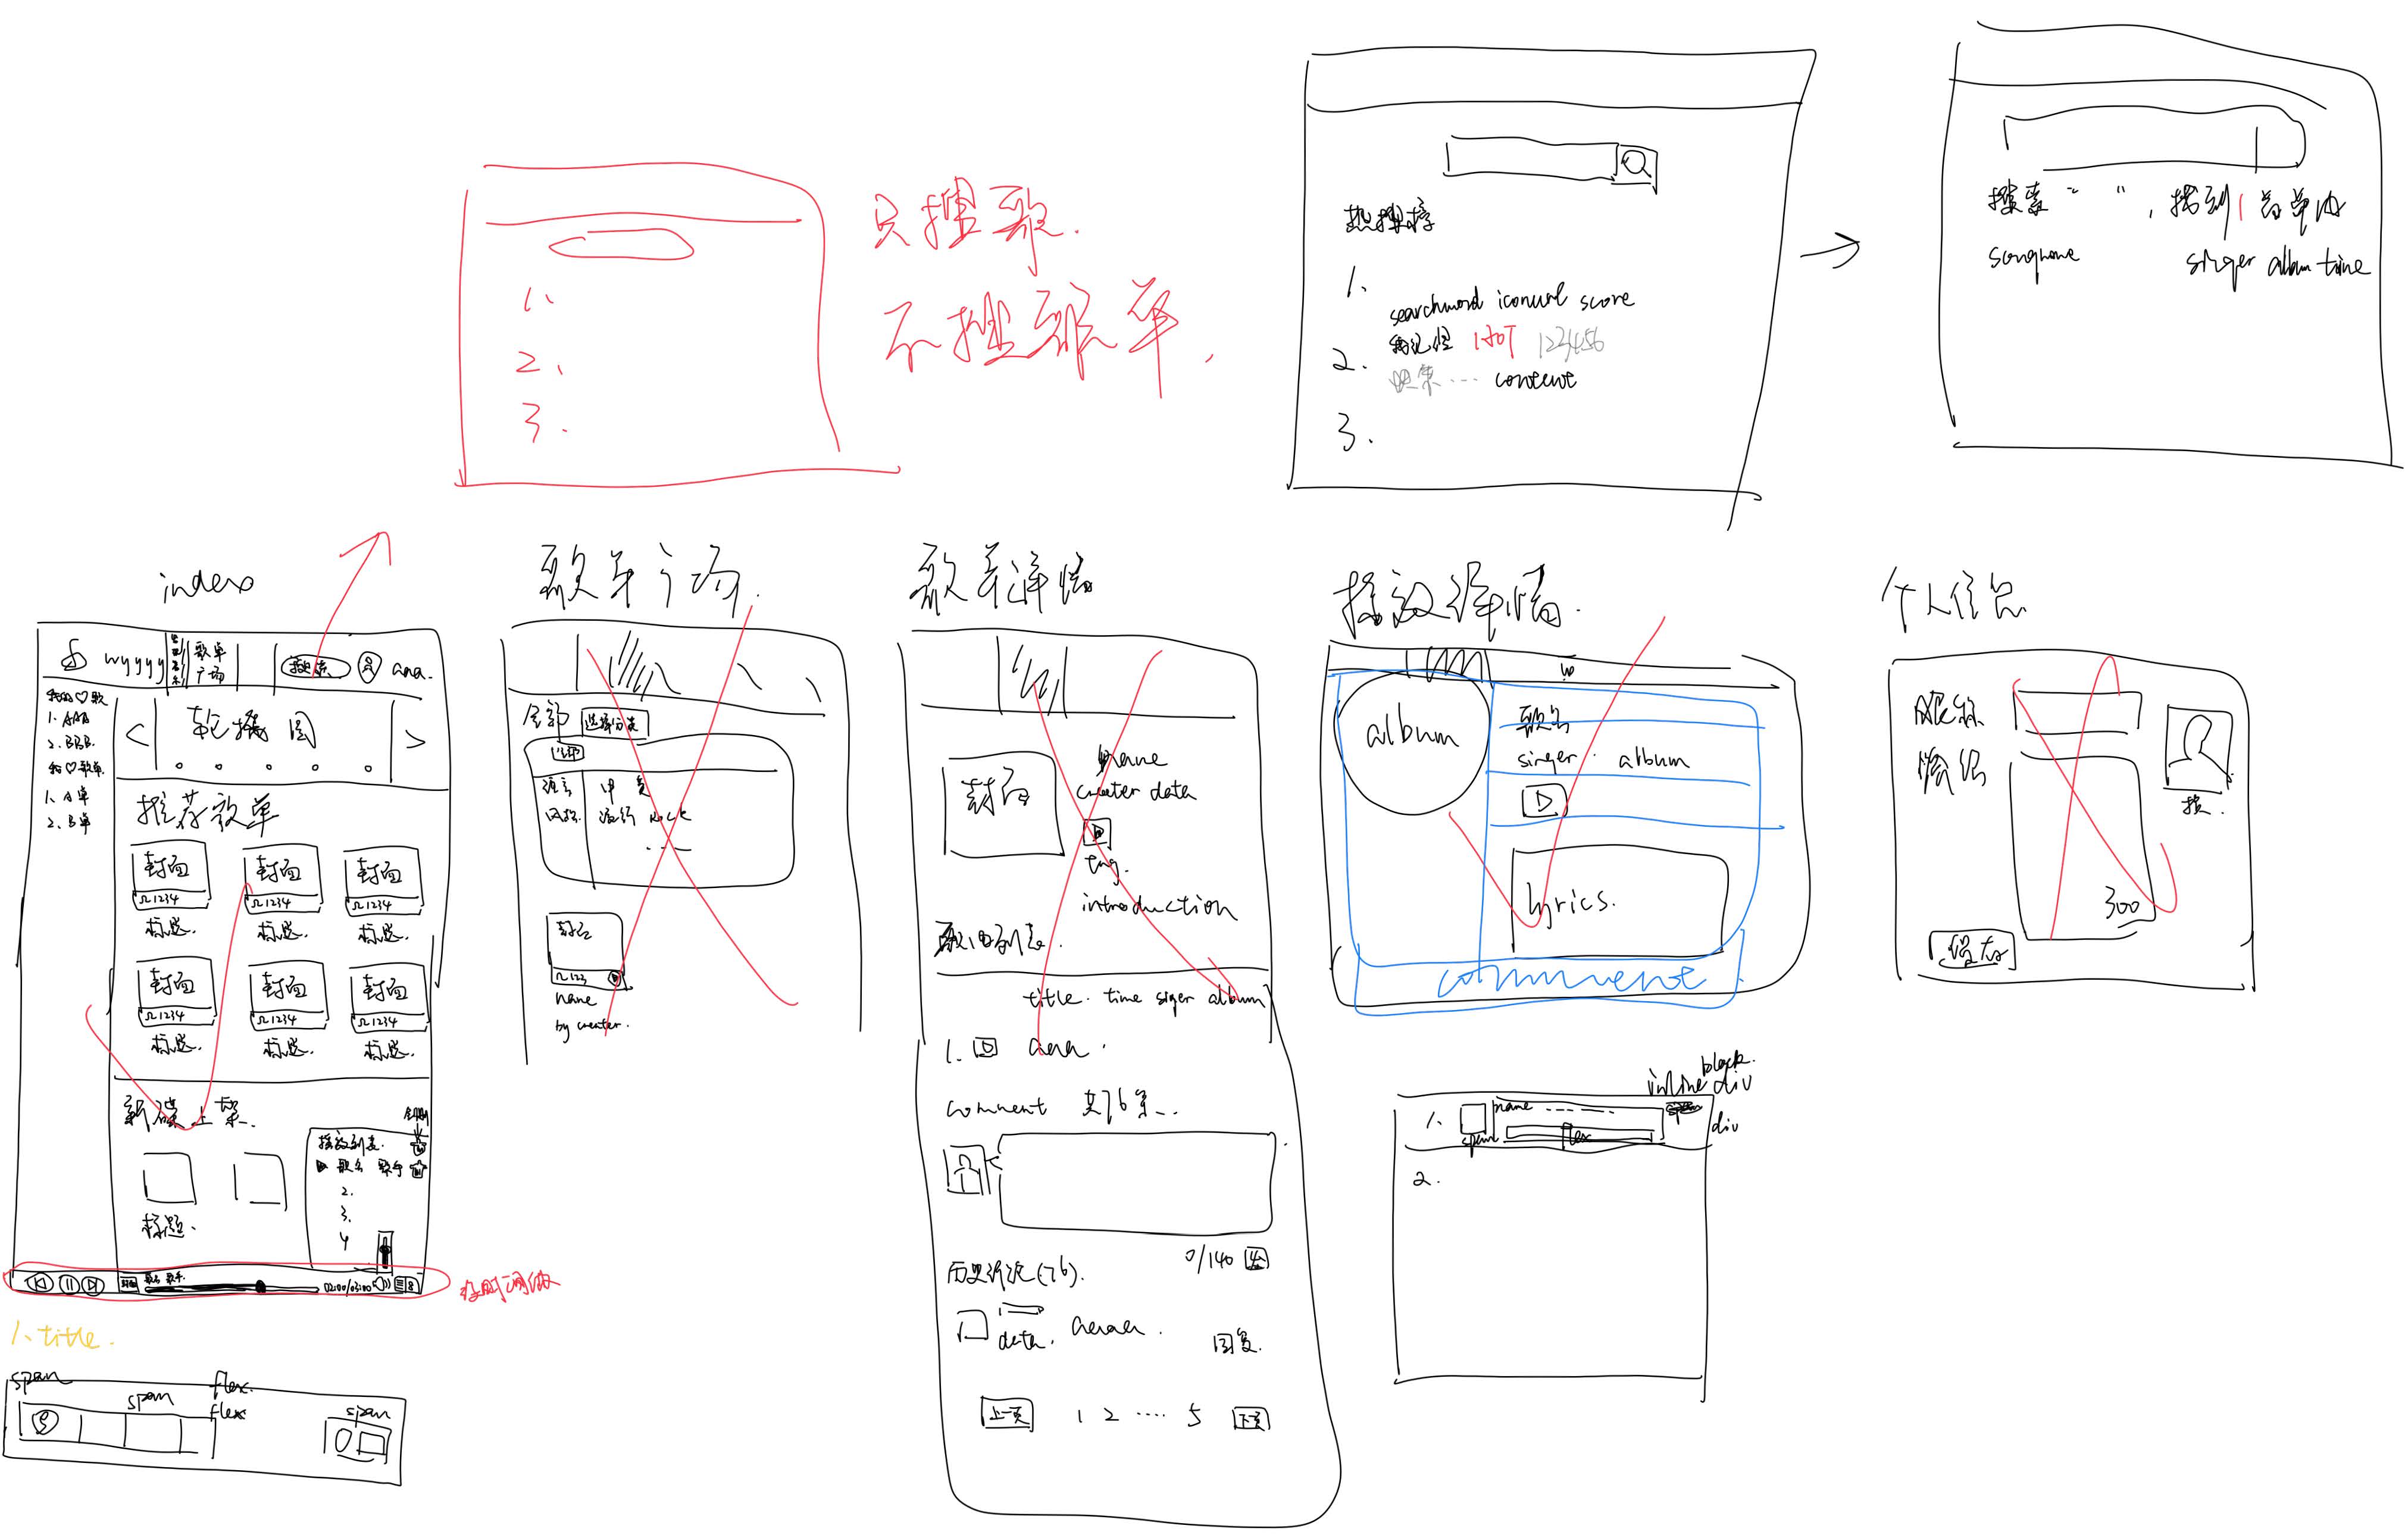 只搜歌.
不搜歌单.
1、
2、
3.
热搜榜
1.
searchword iconurl score
HOT 123456
2.
content
3.
搜索“ ”, 找到1首单曲
songname singer album time
index
wyyyy
歌单广场
搜索
ana.
我的♡歌
1. AAA
2. BBB.
我♡歌单.
1. A单
2. B单
< 轮播图 >
推荐歌单
封面 封面 封面
1234 1234 1234
标题. 标题. 标题.
封面 封面 封面
1234 1234 1234
标题. 标题. 标题.
新碟上架.
标题.
播放列表.
歌名 歌手
2.
3.
4
歌名 歌手.
02:00/03:00
1、title.
span
span
flex.
flex
span
歌单广场.
全部 选择分类
全部
语言 华 英
风格 流行 Rock
....
封面
123
name
by creater.
歌单详情
封面
name
creater data
tag.
introduction
歌曲列表.
title. time siger album
1. aaa.
comment 共76条...
0/140
历史评论(76).
data. aaaaa.
回复.
上一页 1 2 .... 5 下页
播放详情.
album
歌名
singer. album
lyrics.
comment
block.
inline div
1. name
span
flex
div
2.
个人信息
昵称
300
保存